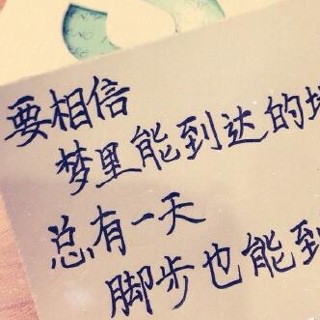 要相信
梦里能到达的
总有一天
脚步也能到